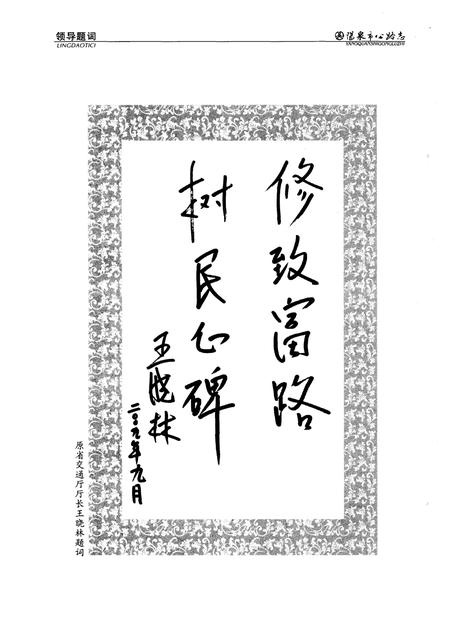 领导题词
LINGDAOTICI
阳泉市公路志
YANGQUANSHIGONGLUZHI
修致富路
树民心碑
王晓林
二〇〇九年九月
原省交通厅厅长王晓林题词